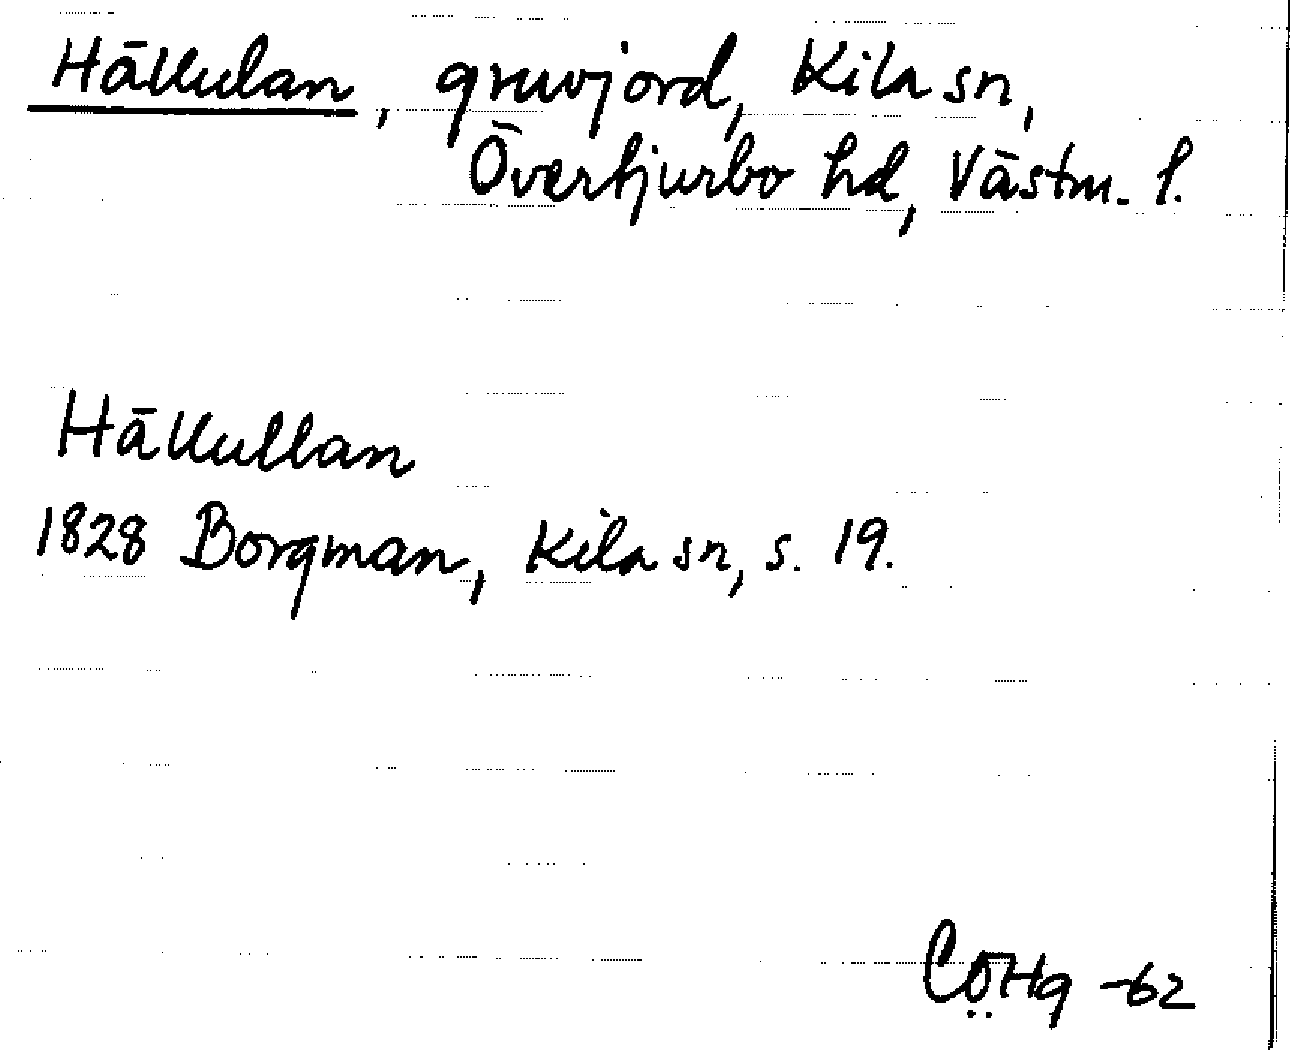 Häkulan, gruvjord, Kila sn,
Övertjurbo hd, Västm. l.
Häkullan
1828 Borgman, Kila sn, s. 19.
CÖHg -62